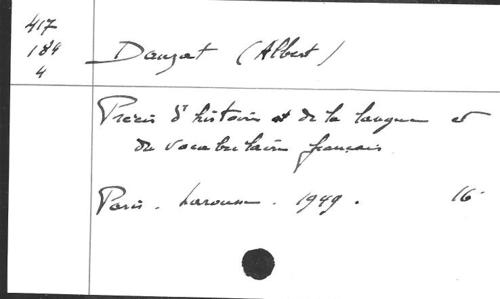 417
184
4
Dauzat (Albert)
Précis d'histoire de la langue et
du vocabulaire français
Paris. Larousse. 1949. 16